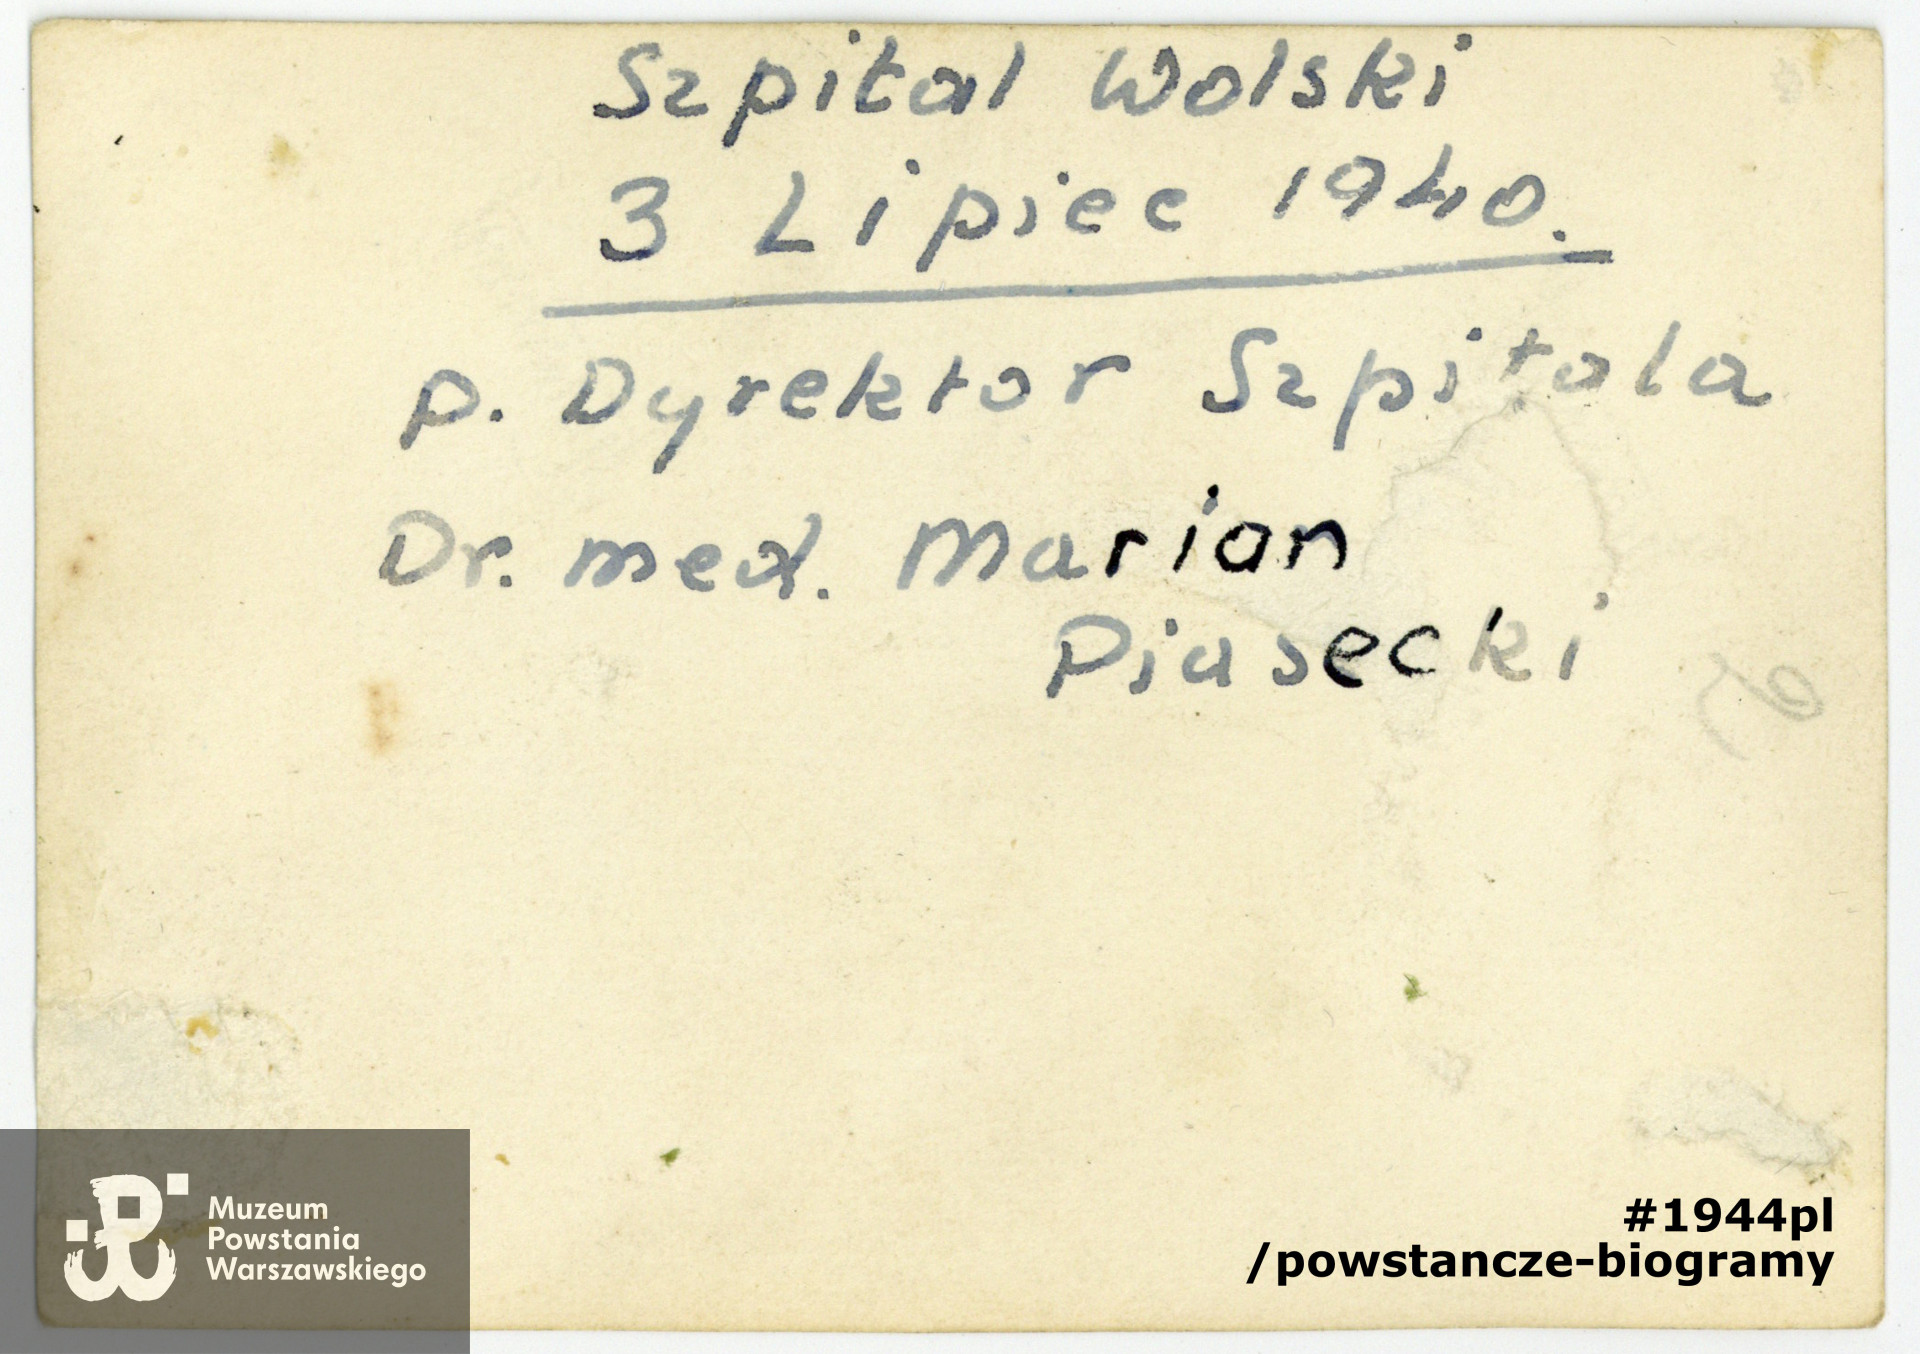 Szpital Wolski
3 Lipiec 1940.
p. Dyrektor Szpitala
Dr. med. Marian
Piasecki
Muzeum
Powstania
Warszawskiego
#1944pl
/powstancze-biogramy